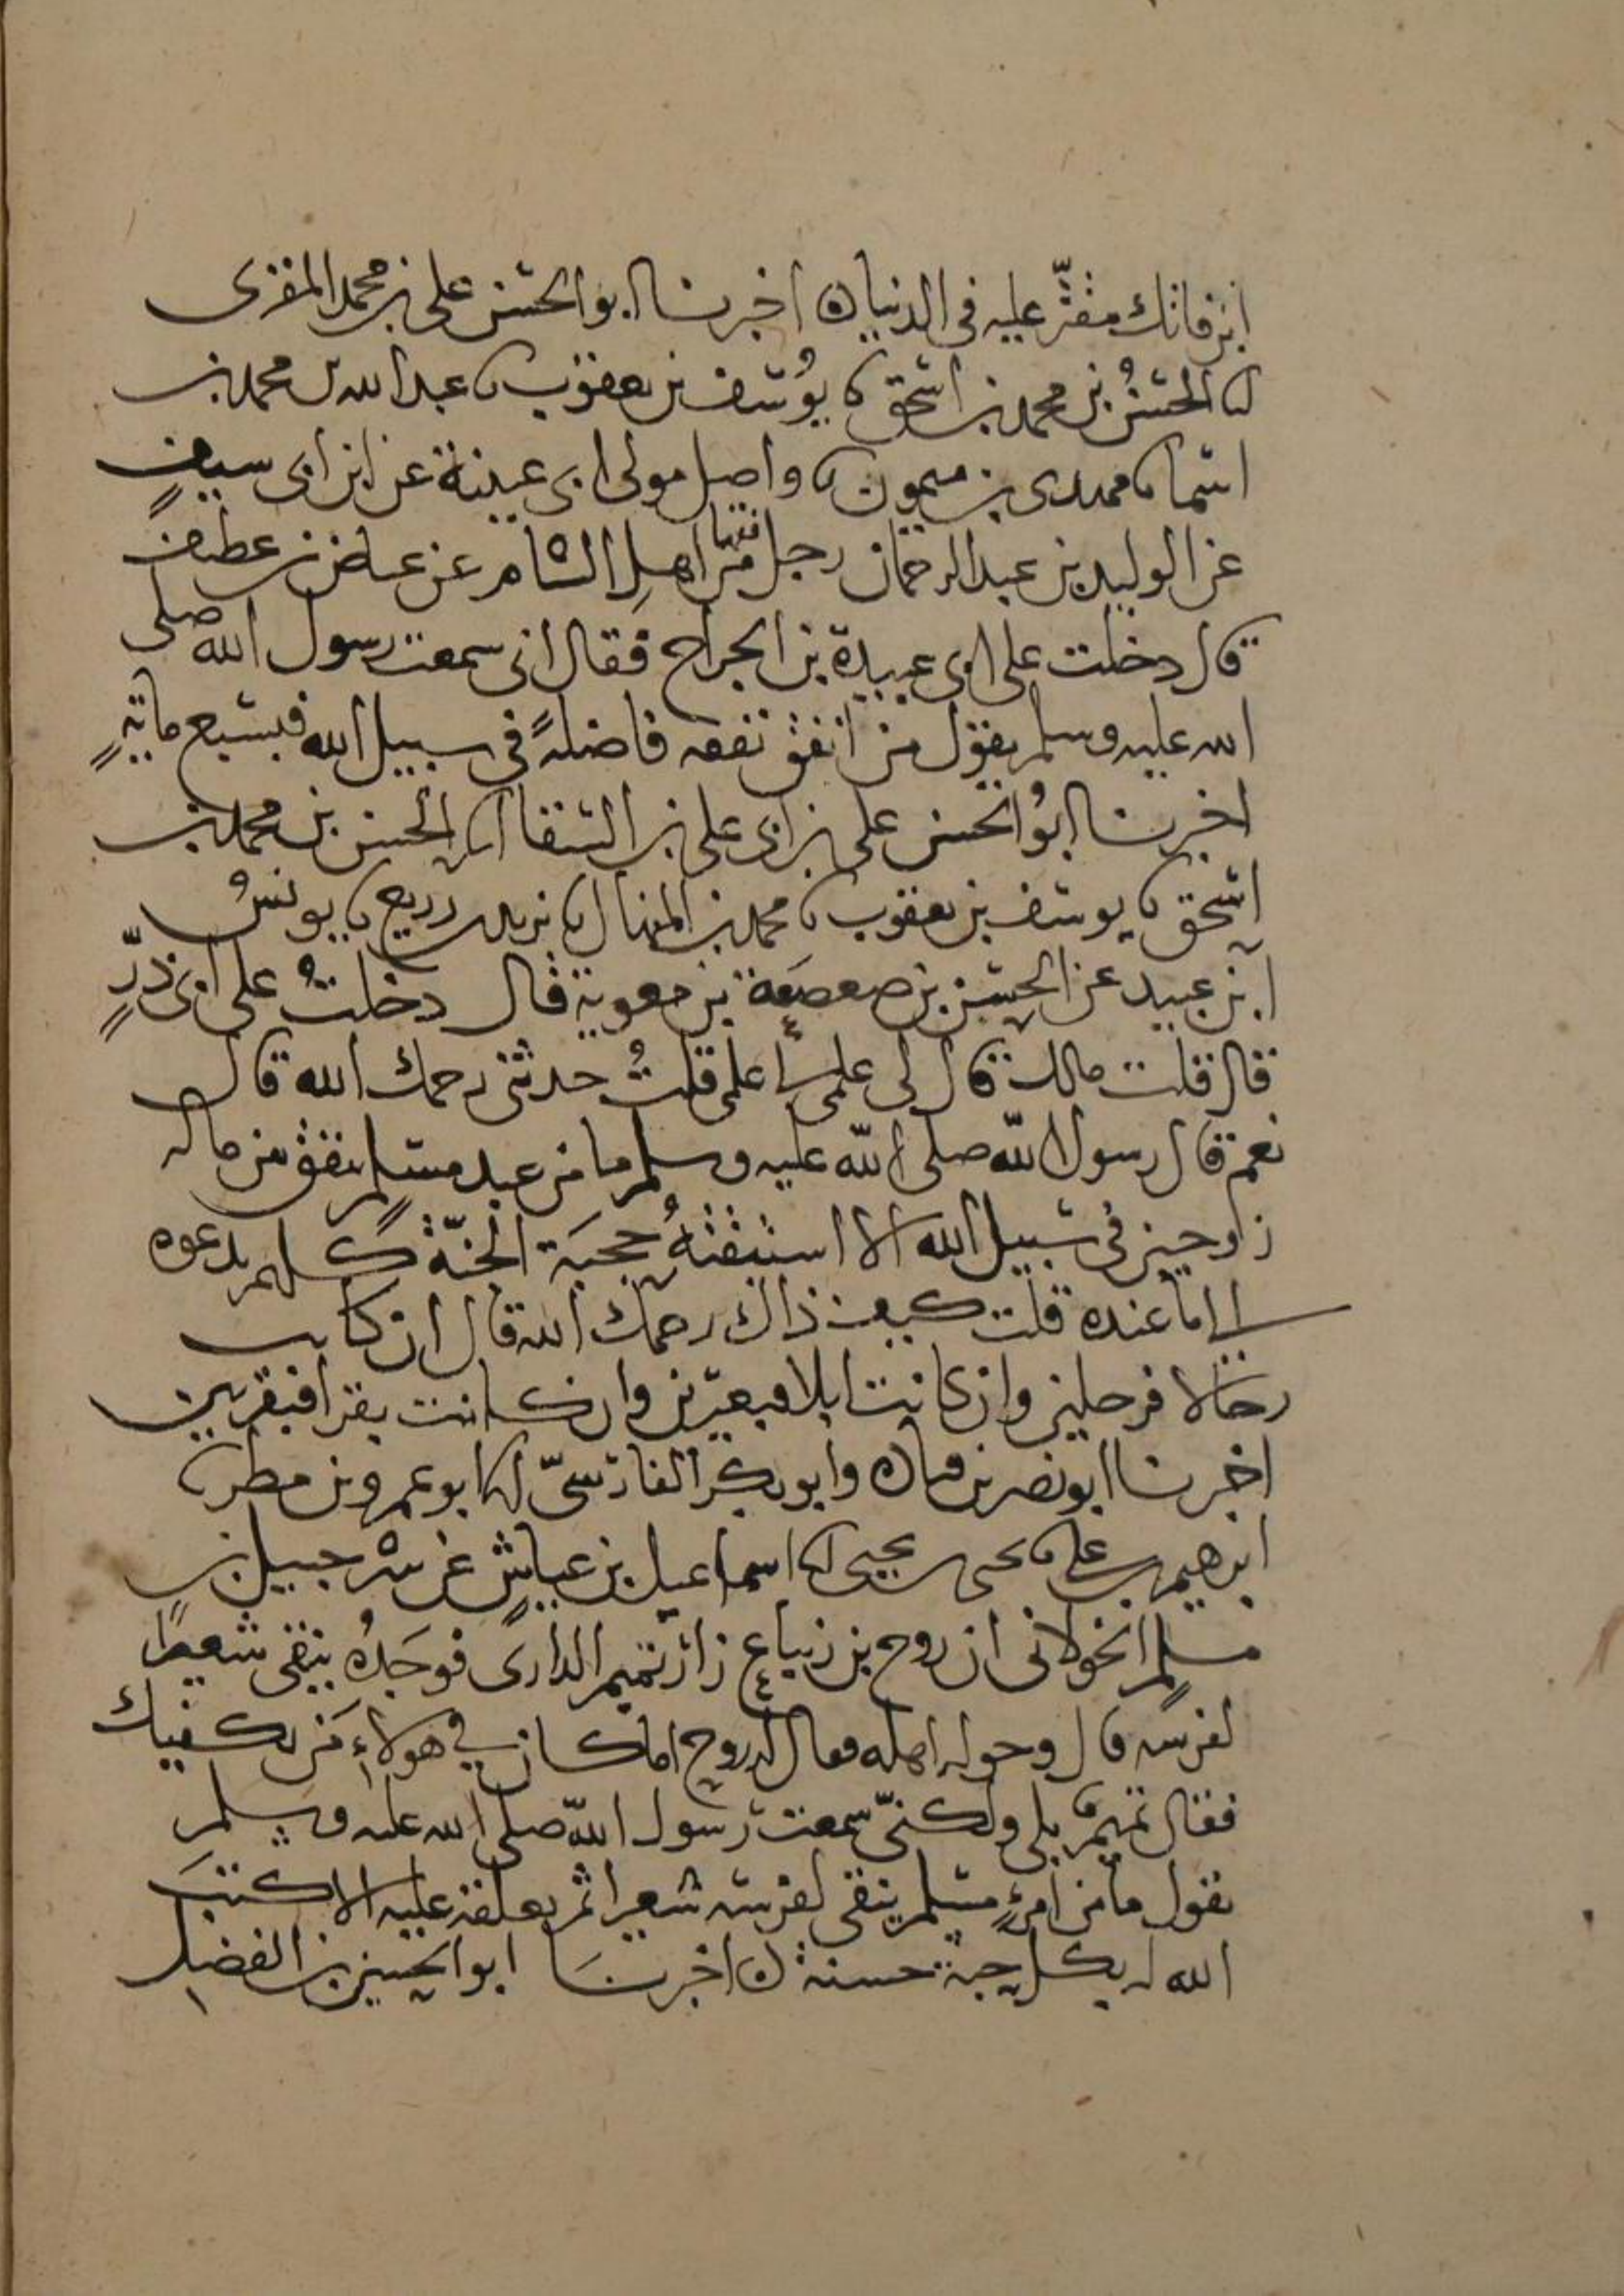 ابن فانك مقتر عليه في الدنيا ه اخبرنا ابو الحسن علي بن محمد المقرى
انا الحسنُ بن محمد بن اسحق نا يوُسف بن يعقوب نا عبد الله بن محمد بن
اسما نا مهدي بن ميمون نا واصل مولى ابي عيينة عن ابن ابي سيفٍ
عن الوليد بن عبد الرحمان رجل من اهلِ الشام عن عياض بن عطيف
قال دخلت على ابي عبيدة بن الجراح فقال اني سمعت رسول الله صلى
الله عليه وسلم يقول من انفق نفقه فاضلةً في سبيل الله فبسبع مائةٍ
اخبرنا ابوُ الحسن علي بن ابي علي بن السقا انا الحسن بن محمد بن
اسحق نا يوسف بن يعقوب نا محمد بن المنهال نا يزيد بن زريع نا يونسُ
ابن عبيد عن الحسن بن صعصَعة بن معوية قال دخلتُ على ابي ذرٍّ
قال قلت مالك قال لي عملي عملي قلتُ حدثني رحمك الله قال
نعم قال رسول اللّه صلى اللّه عليه وسلم ما من عبد مسلمٍ ينفق من ماله
زاوجين في سبيل الله الا استبقتهُ حجبَة الجنّة كلهم يدعوه
الى ما عنده قلت كيف ذاك رحمك الله قال ان كانت
رحالا فرحلين وان كانت ابلا فبعيرين وان كانت بقرا فبقرتين
اخبرنا ابو نصر بن قتاده وابو بكر الفارسيّ انا ابو عمرو بن مطر نا
ابرهيم بن علي نا يحيى بن يحيى انا اسماعيل بن عياشٍ عن شرحبيل بن
مسلمٍ الخولاني ان روح بن زنباع زار تميم الدارى فوجَدهُ ينقى شعيرًا
لفرسه قال وحوله اهله فقال له روح اما كان في هولاءِ مَن يكفيك
فقال تميمٌ بلى ولكنّي سمعت رسول اللّه صلى الله عليه وسلم
يقول ما من امرئٍ مسلم ينقى لفرسه شعيرا ثم يعلفه عليه الا كتبَ
الله له بكل حبة حسنة ه اخبرنَا ابو الحسين بن الفضل